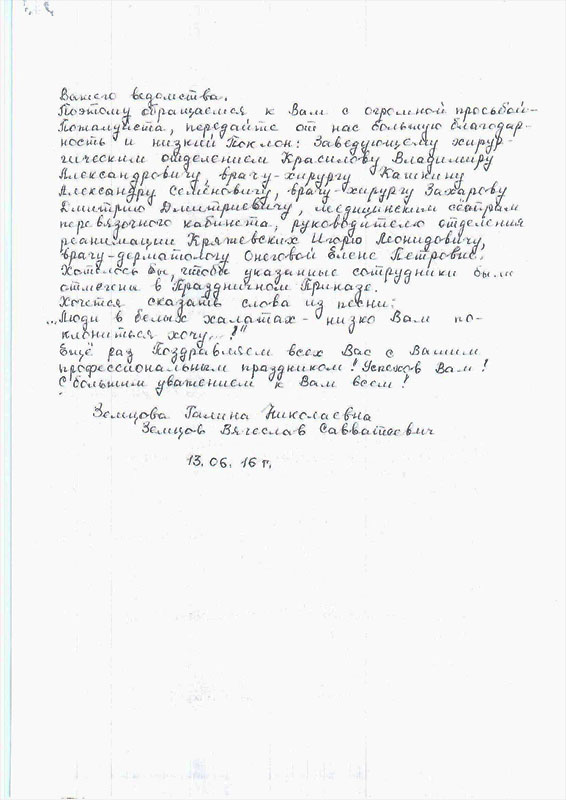 Вашего ведомства.
Поэтому обращаемся к Вам с огромной просьбой-
Пожалуйста, передайте от нас большую благодар-
ность и низкий Поклон: Заведующему хирур-
гическим отделением Красилову Владимиру
Александровичу, врачу-хирургу Кашкину
Александру Семёновичу, врачу-хирургу Захарову
Дмитрию Дмитриевичу, медицинским сёстрам
перевязочного кабинета, руководителю отделения
реанимации Кряжевских Игорю Леонидовичу,
врачу-дерматологу Онеговой Елене Петровне.
Хотелось бы, чтобы указанные сотрудники были
отмечены в Праздничном Приказе.
Хочется сказать слова из песни:
„Люди в белых халатах - низко Вам по-
клониться хочу...!"
Ещё раз Поздравляем всех Вас с Вашим
профессиональным праздником! Успехов Вам!
С большим уважением к Вам всем!
Земцова Галина Николаевна
Земцов Вячеслав Савватеевич
13.06.16 г.